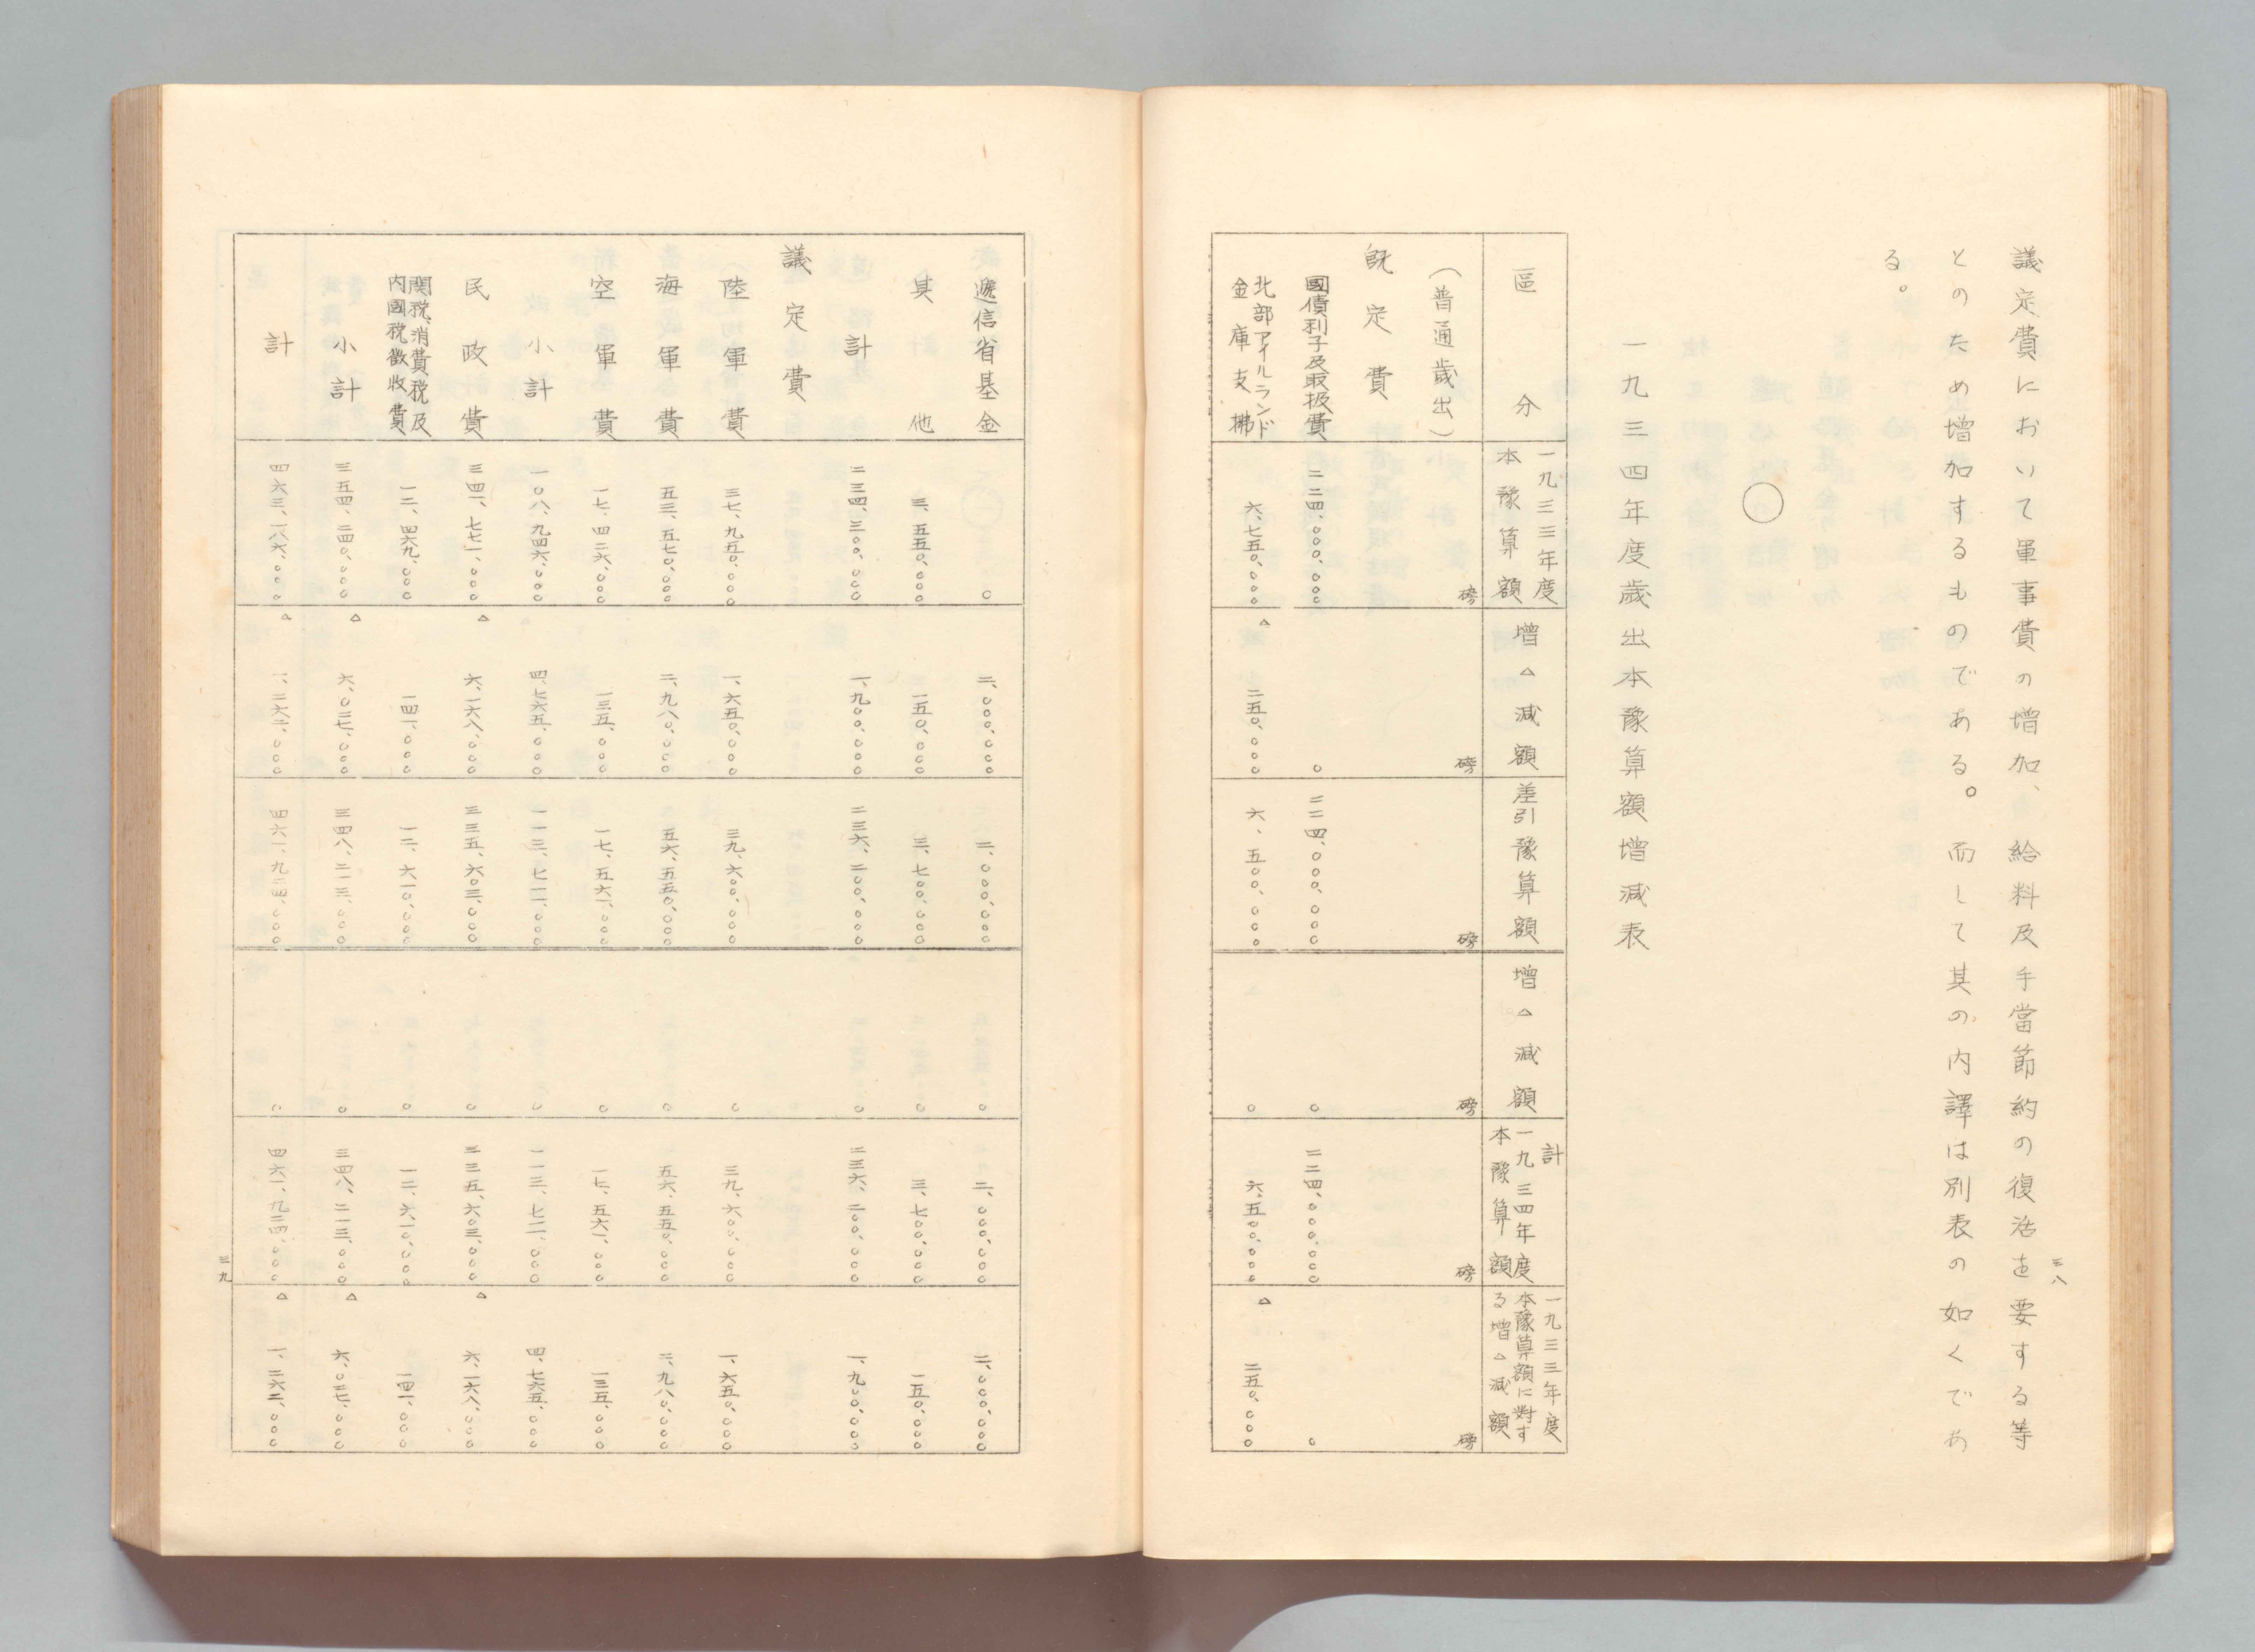 三八
議定費において軍事費の増加、給料及手當節約の復活を要する等
とのため増加するものである。而して其の内譯は別表の如くであ
る。
○
一九三四年度歳出本豫算額増減表
區分 一九三三年度本豫算額 増△減額 差引豫算額 増△減額 計一九三四年度本豫算額 一九三三年度本豫算額に對する増△減額
(普通歳出) 磅 磅 磅 磅 磅 磅
既定費
國債利子及取扱費 二二四、〇〇〇、〇〇〇 〇 二二四、〇〇〇、〇〇〇 〇 二二四、〇〇〇、〇〇〇 〇
北部アイルランド金庫支拂 六、七五〇、〇〇〇 △二五〇、〇〇〇 六、五〇〇、〇〇〇 〇 六、五〇〇、〇〇〇 △二五〇、〇〇〇
遞信省基金 〇 二、〇〇〇、〇〇〇 二、〇〇〇、〇〇〇 〇 二、〇〇〇、〇〇〇 二、〇〇〇、〇〇〇
其他 三、五五〇、〇〇〇 一五〇、〇〇〇 三、七〇〇、〇〇〇 〇 三、七〇〇、〇〇〇 一五〇、〇〇〇
計 二三四、三〇〇、〇〇〇 一、九〇〇、〇〇〇 二三六、二〇〇、〇〇〇 〇 二三六、二〇〇、〇〇〇 一、九〇〇、〇〇〇
議定費
陸軍費 三七、九五〇、〇〇〇 一、六五〇、〇〇〇 三九、六〇〇、〇〇〇 〇 三九、六〇〇、〇〇〇 一、六五〇、〇〇〇
海軍費 五三、五七〇、〇〇〇 二、九八〇、〇〇〇 五六、五五〇、〇〇〇 〇 五六、五五〇、〇〇〇 二、九八〇、〇〇〇
空軍費 一七、四二六、〇〇〇 一三五、〇〇〇 一七、五六一、〇〇〇 〇 一七、五六一、〇〇〇 一三五、〇〇〇
小計 一〇八、九四六、〇〇〇 四、七六五、〇〇〇 一一三、七一一、〇〇〇 〇 一一三、七一一、〇〇〇 四、七六五、〇〇〇
民政費 三四一、七七一、〇〇〇 △六、一六八、〇〇〇 三三五、六〇三、〇〇〇 〇 三三五、六〇三、〇〇〇 △六、一六八、〇〇〇
関税、消費税及内國税徴收費 一二、四六九、〇〇〇 一四一、〇〇〇 一二、六一〇、〇〇〇 〇 一二、六一〇、〇〇〇 一四一、〇〇〇
小計 三五四、二四〇、〇〇〇 △六、〇二七、〇〇〇 三四八、二一三、〇〇〇 〇 三四八、二一三、〇〇〇 △六、〇二七、〇〇〇
計 四六三、一八六、〇〇〇 △一、二六二、〇〇〇 四六一、九二四、〇〇〇 〇 四六一、九二四、〇〇〇 △一、二六二、〇〇〇
三九